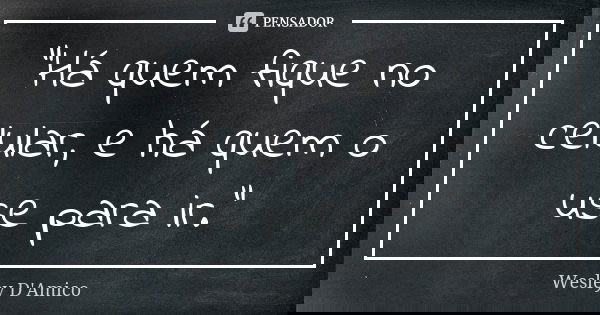 PENSADOR
"Há quem fique no
celular, e há quem o
use para ir."
Wesley D'Amico